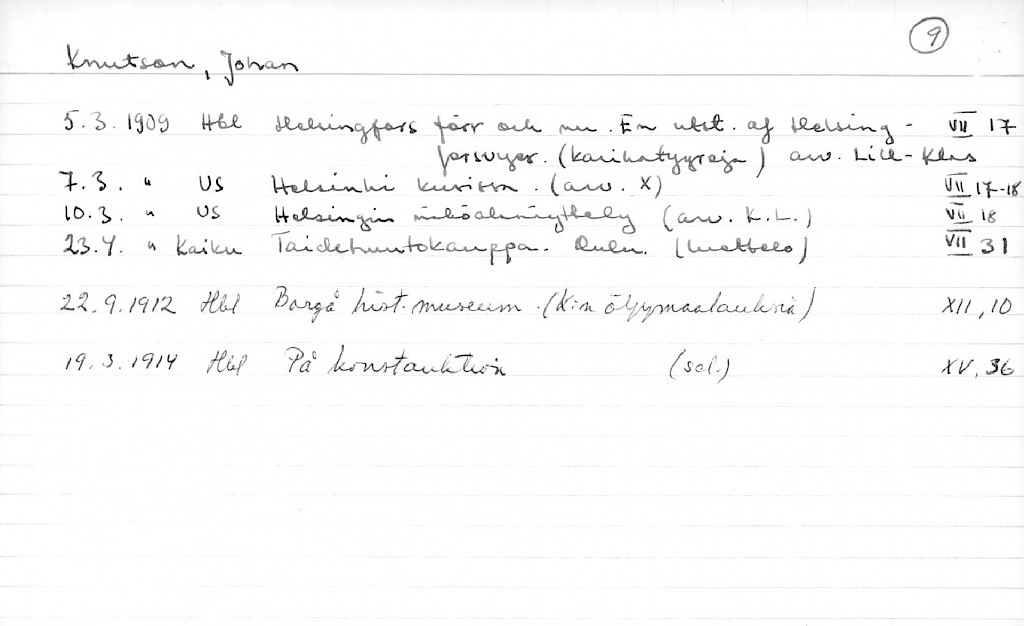 9
Knutson, Johan
5.3.1909 Hbl Helsingfors förr och nu. En utst. af Helsing- VII 17
forsvyer. (karikatyyreja) arv. Lill-Klas
7.3. " US Helsinki kuvissa. (arv. X) VII 17-18
10.3. " US Helsingin näköalanäyttely (arv. K.L.) VII 18
23.4. " Kaiku Taidehuutokauppa. Oulu. (luettelo) VII 31
22.9.1912 Hbl Borgå hist. museum. (K:n öljymaalauksia) XII, 10
19.3.1914 Hbl På konstauktion (sel.) XV, 36